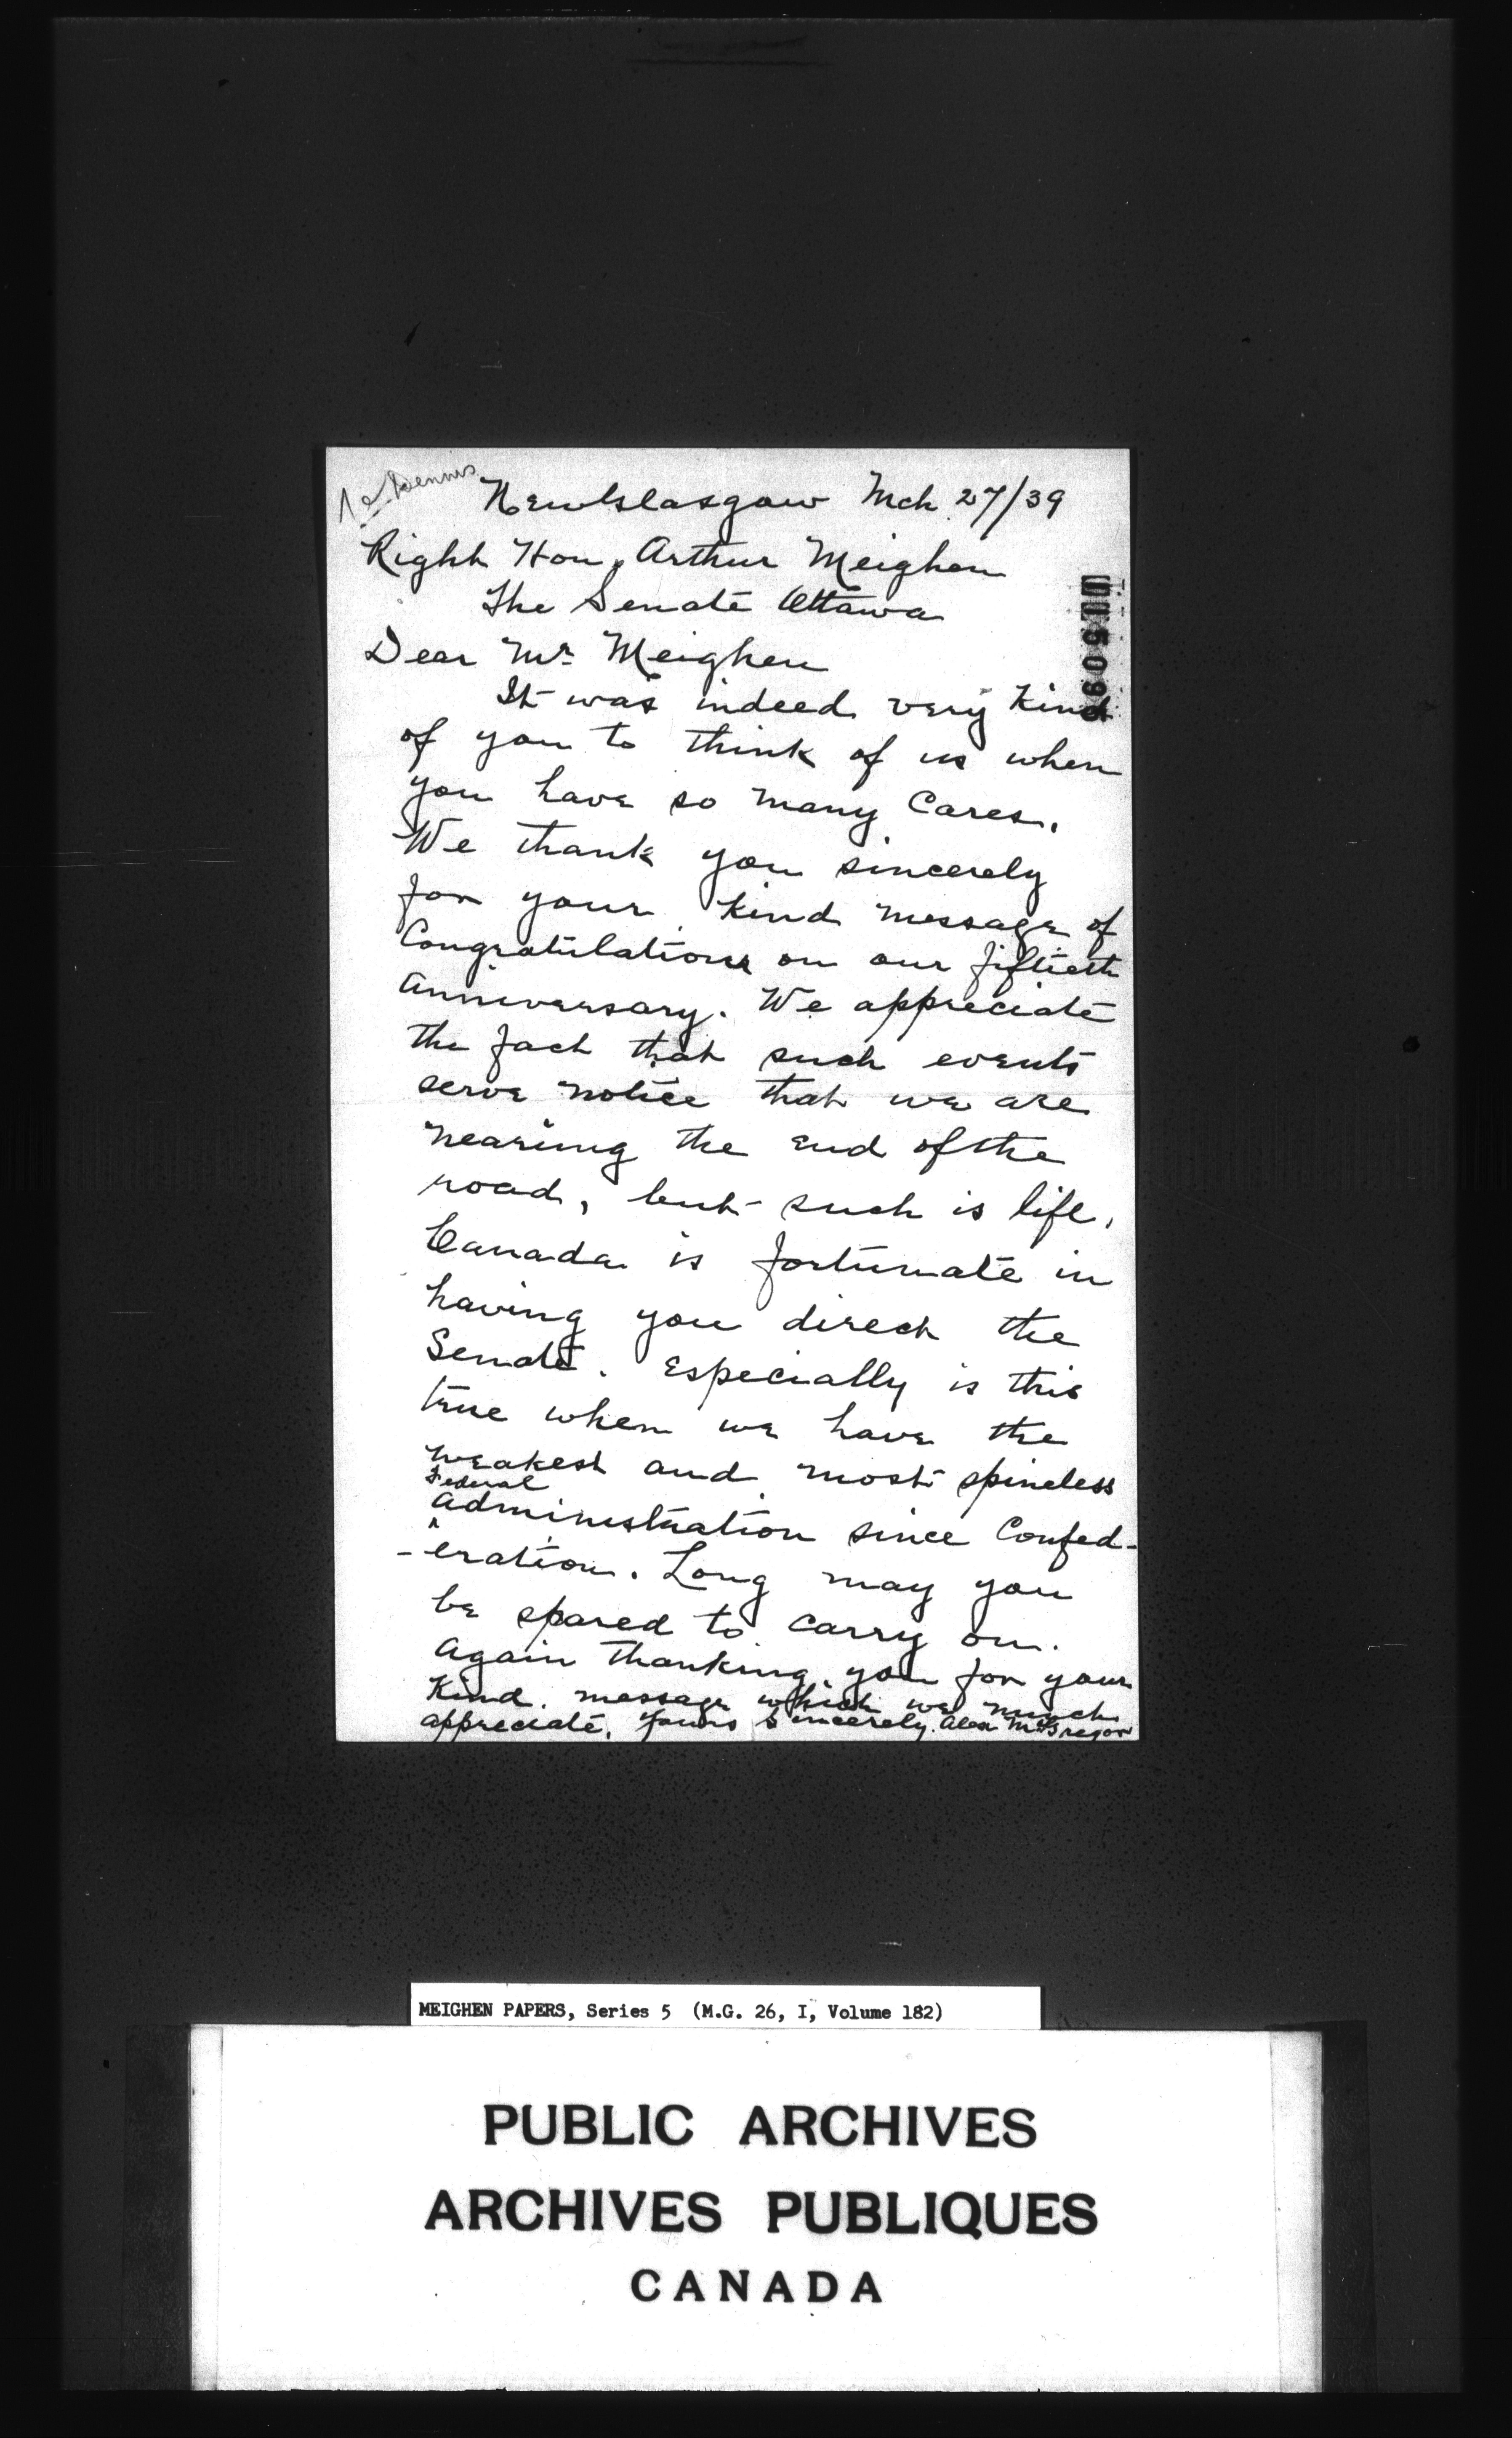 New Glasgow Mch 27/39
Right Hon. Arthur Meighen
The Senate Ottawa
Dear Mr. Meighen
It was indeed very kind
of you to think of us when
you have so many cares.
We thank you sincerely
for your kind message of
Congratulations on our fiftieth
anniversary. We appreciate
the fact that such events
serve notice that we are
nearing the end of the
road, but such is life.
Canada is fortunate in
having you direct the
Senate. Especially is this
true when we have the
weakest and most spineless
Federal
administration since Confed-
-eration. Long may you
be spared to carry on.
Again thanking you for your
kind message which we much
appreciate. Yours Sincerely. Alex McGregor
MEIGHEN PAPERS, Series 5 (M.G. 26, I, Volume 182)
PUBLIC ARCHIVES
ARCHIVES PUBLIQUES
CANADA